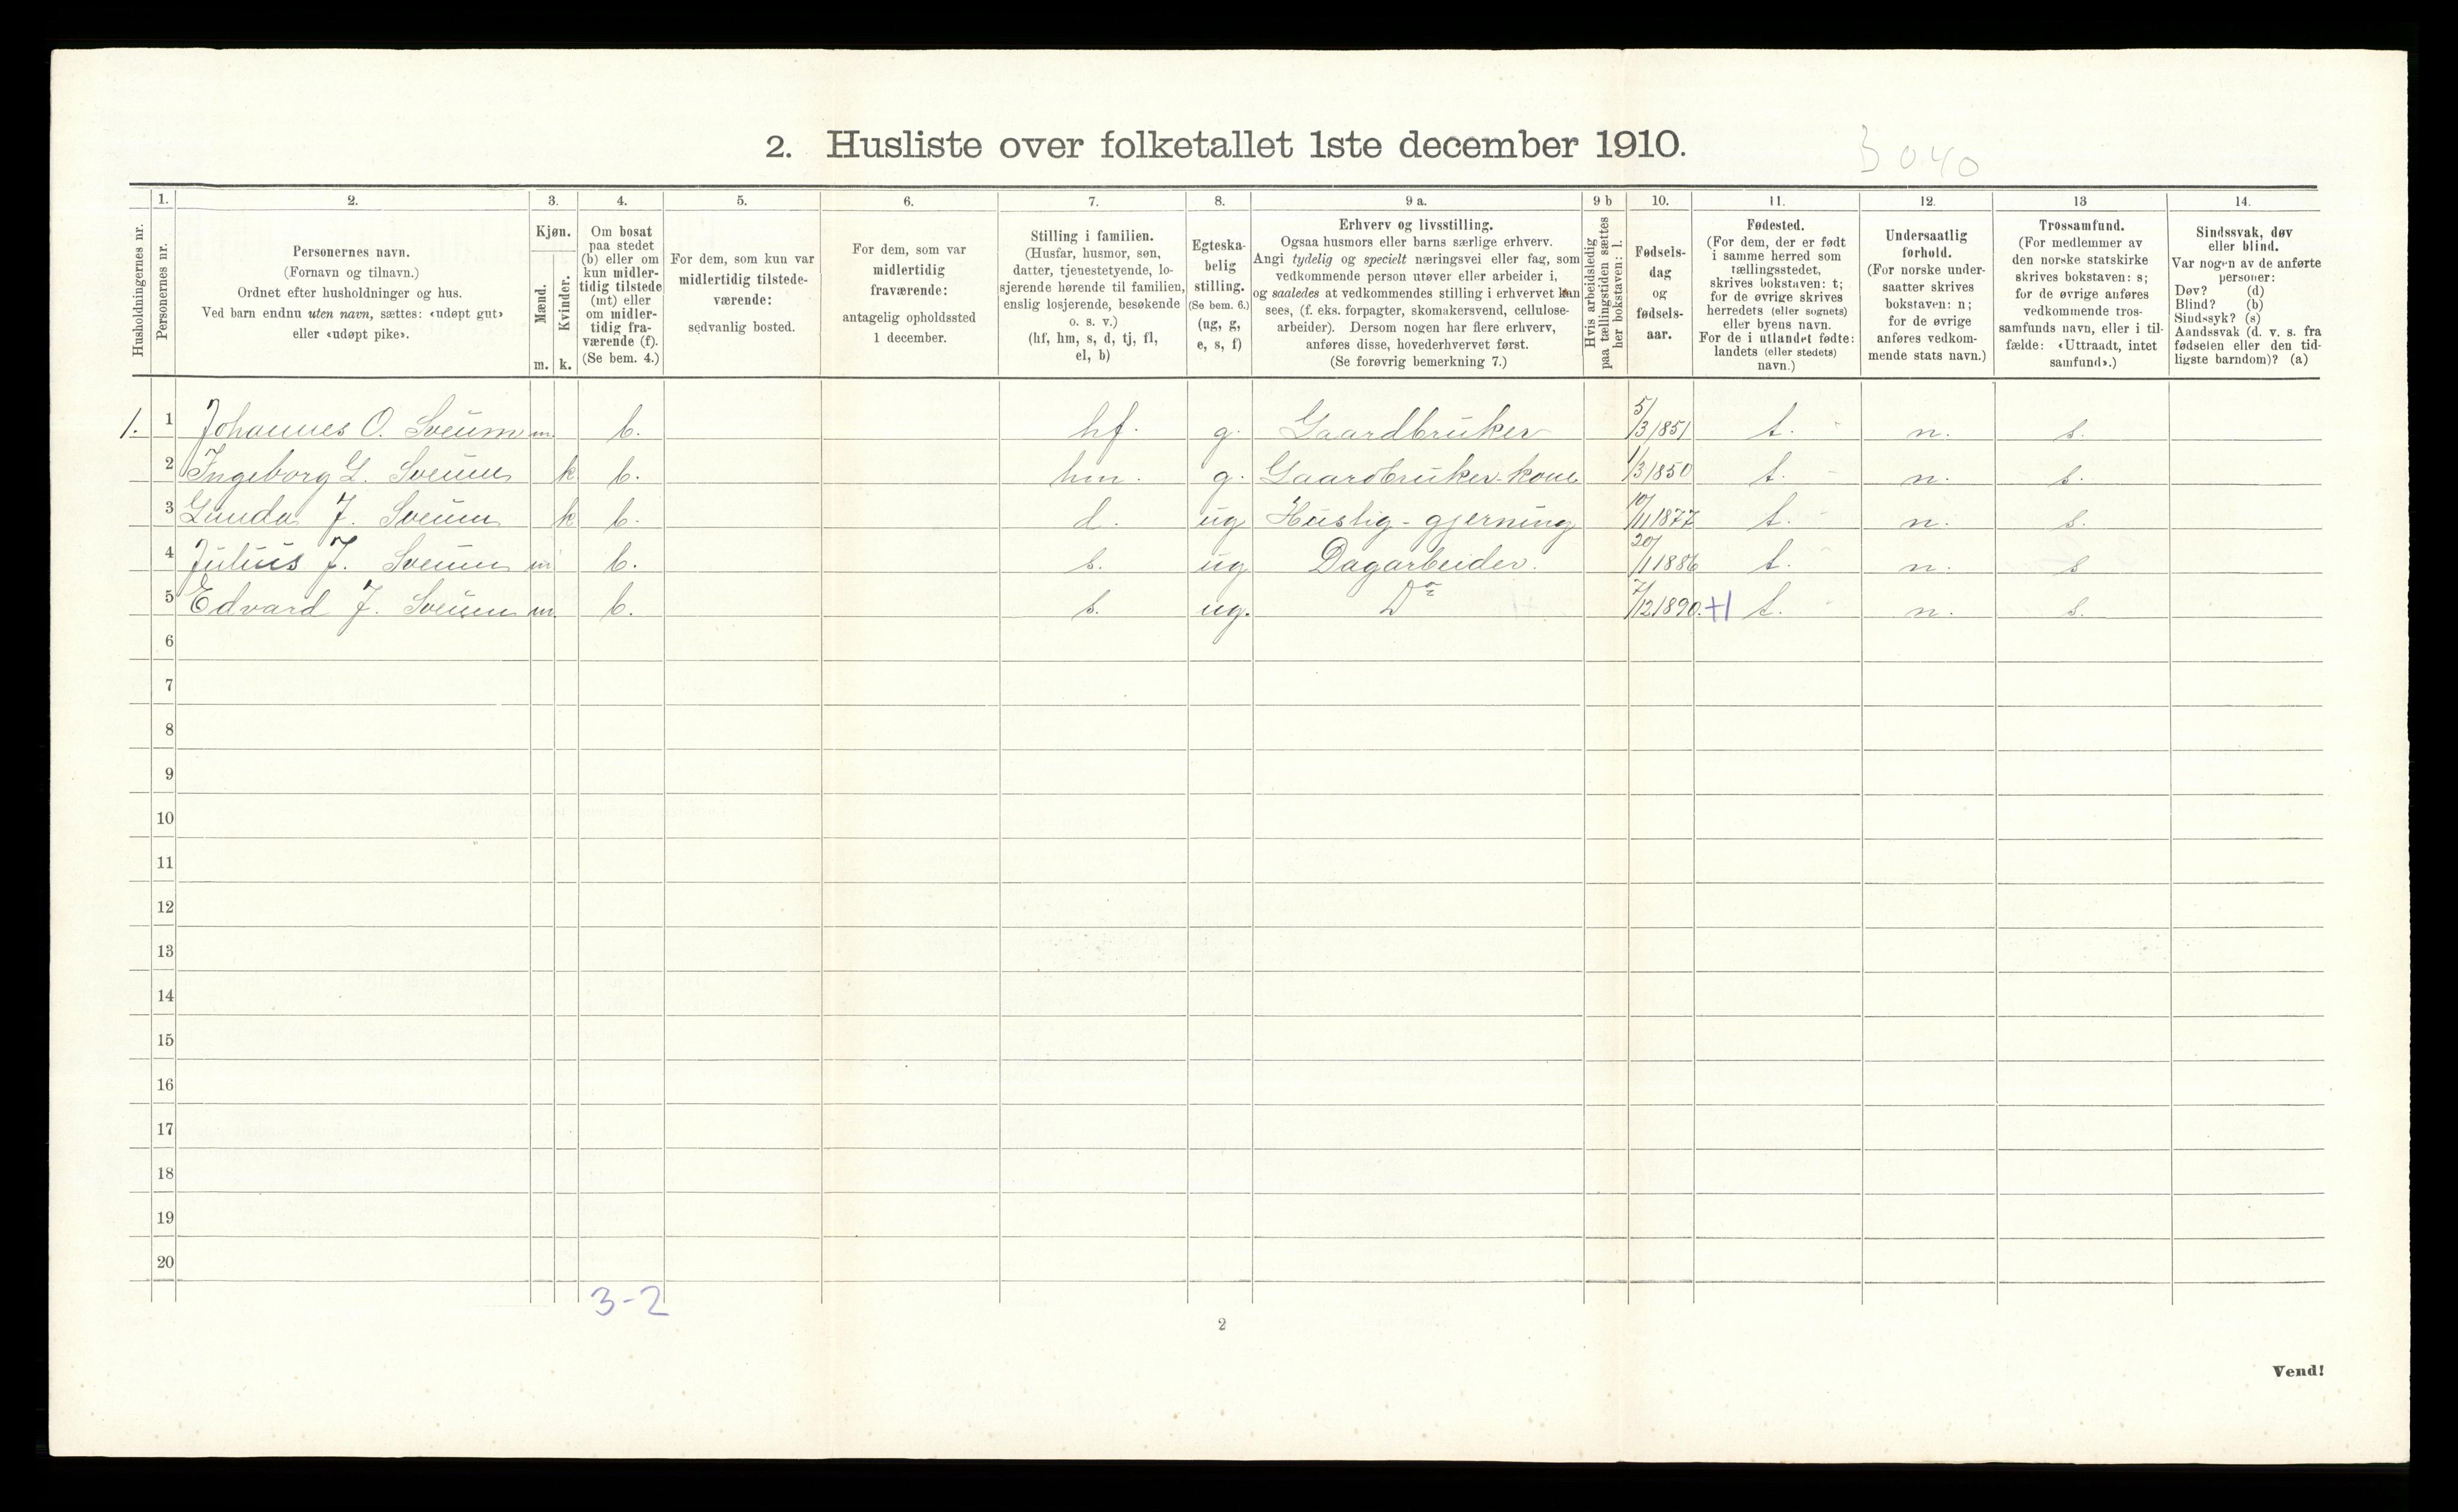 2. Husliste over folketallet 1ste december 1910.
3040
Husholdningernes nr.
1.
Personernes nr.
2.
Personernes navn.
(Fornavn og tilnavn.)
Ordnet efter husholdninger og hus.
Ved barn endnu uten navn, sættes: «udøpt gut»
eller «udøpt pike».
3.
Kjøn.
Mænd.
m.
Kvinder.
k.
4.
Om bosat
paa stedet
(b) eller om
kun midler-
tidig tilstede
(mt) eller
om midler-
tidig fra-
værende (f).
(Se bem. 4.)
5.
For dem, som kun var
midlertidig tilstede-
værende:
sedvanlig bosted.
6.
For dem, som var
midlertidig
fraværende:
antagelig opholdssted
1 december.
7.
Stilling i familien.
(Husfar, husmor, søn,
datter, tjenestetyende, lo-
sjerende hørende til familien,
enslig losjerende, besøkende
o. s. v.)
(hf, hm, s, d, tj, fl,
el, b)
8.
Egteska-
belig
stilling.
(Se bem. 6.)
(ug, g,
e, s, f)
9 a.
Erhverv og livsstilling.
Ogsaa husmors eller barns særlige erhverv.
Angi tydelig og specielt næringsvei eller fag, som
vedkommende person utøver eller arbeider i,
og saaledes at vedkommendes stilling i erhvervet kan
sees, (f. eks. forpagter, skomakersvend, cellulose-
arbeider). Dersom nogen har flere erhverv,
anføres disse, hovederhvervet først.
(Se forøvrig bemerkning 7.)
9 b
Hvis arbeidsledig
paa tællingstiden sættes
her bokstaven: l.
10.
Fødsels-
dag
og
fødsels-
aar.
11.
Fødested.
(For dem, der er født
i samme herred som
tællingsstedet,
skrives bokstaven: t;
for de øvrige skrives
herredets (eller sognets)
eller byens navn.
For de i utlandet fødte:
landets (eller stedets)
navn.)
12.
Undersaatlig
forhold.
(For norske under-
saatter skrives
bokstaven: n;
for de øvrige
anføres vedkom-
mende stats navn.)
13
Trossamfund.
(For medlemmer av
den norske statskirke
skrives bokstaven: s;
for de øvrige anføres
vedkommende tros-
samfunds navn, eller i til-
fælde: «Uttraadt, intet
samfund».)
14.
Sindssvak, døv
eller blind.
Var nogen av de anførte
personer:
Døv? (d)
Blind? (b)
Sindssyk? (s)
Aandssvak (d. v. s. fra
fødselen eller den tid-
ligste barndom)? (a)
1. 1 Johannes O. Sveum m. b. hf. g. Gaardbruker 5/3 1851 t. n. s.
2 Ingeborg G. Sveum k b. hm. g. Gaardbruker-kone 1/3 1850 t. n. s.
3 Gunda J. Sveum k b. d. ug Huslig-gjerning 10/11 1877 t. n. s.
4 Julius J. Sveum m b. s. ug Dagarbeider. 20/1 1886 t. n. s
5 Edvard J. Sveum m. b. s. ug. Do 7/12 1890. +1 t. n. s.
6
7
8
9
10
11
12
13
14
15
16
17
18
19
20
3-2
2
Vend!